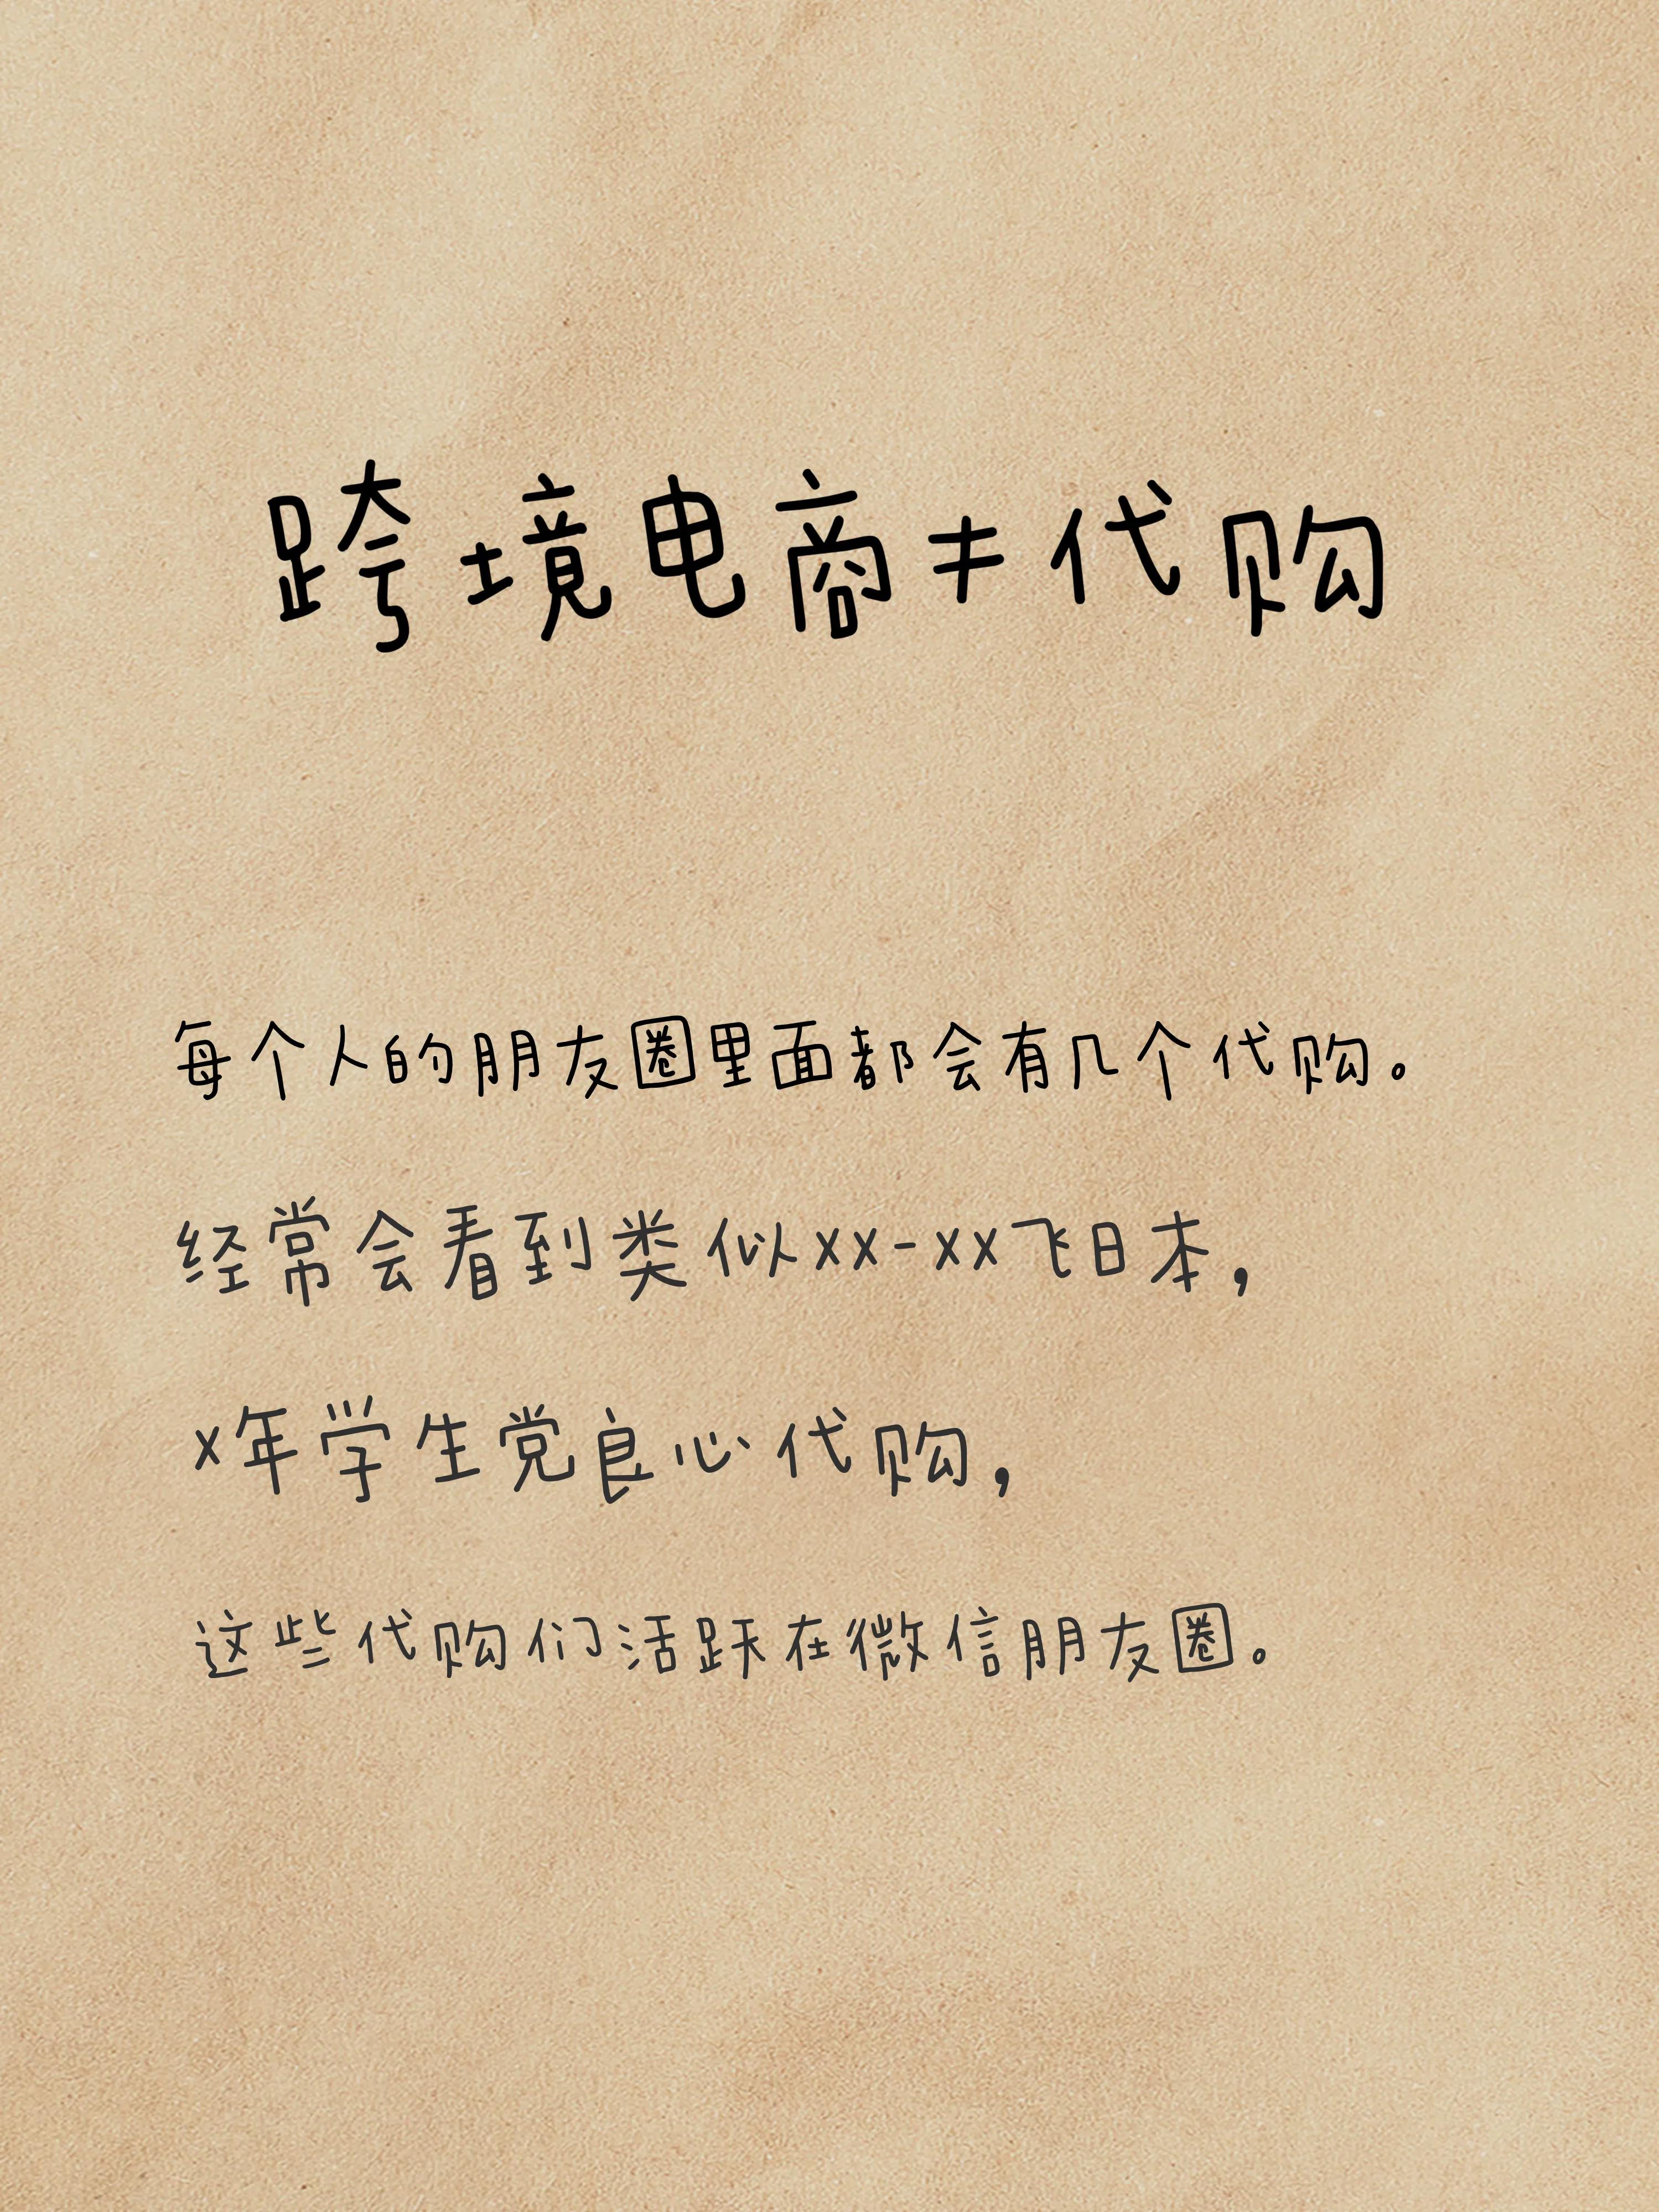 跨境电商≠代购
每个人的朋友圈里面都会有几个代购。
经常会看到类似xx-xx飞日本,
x年学生党良心代购,
这些代购们活跃在微信朋友圈。